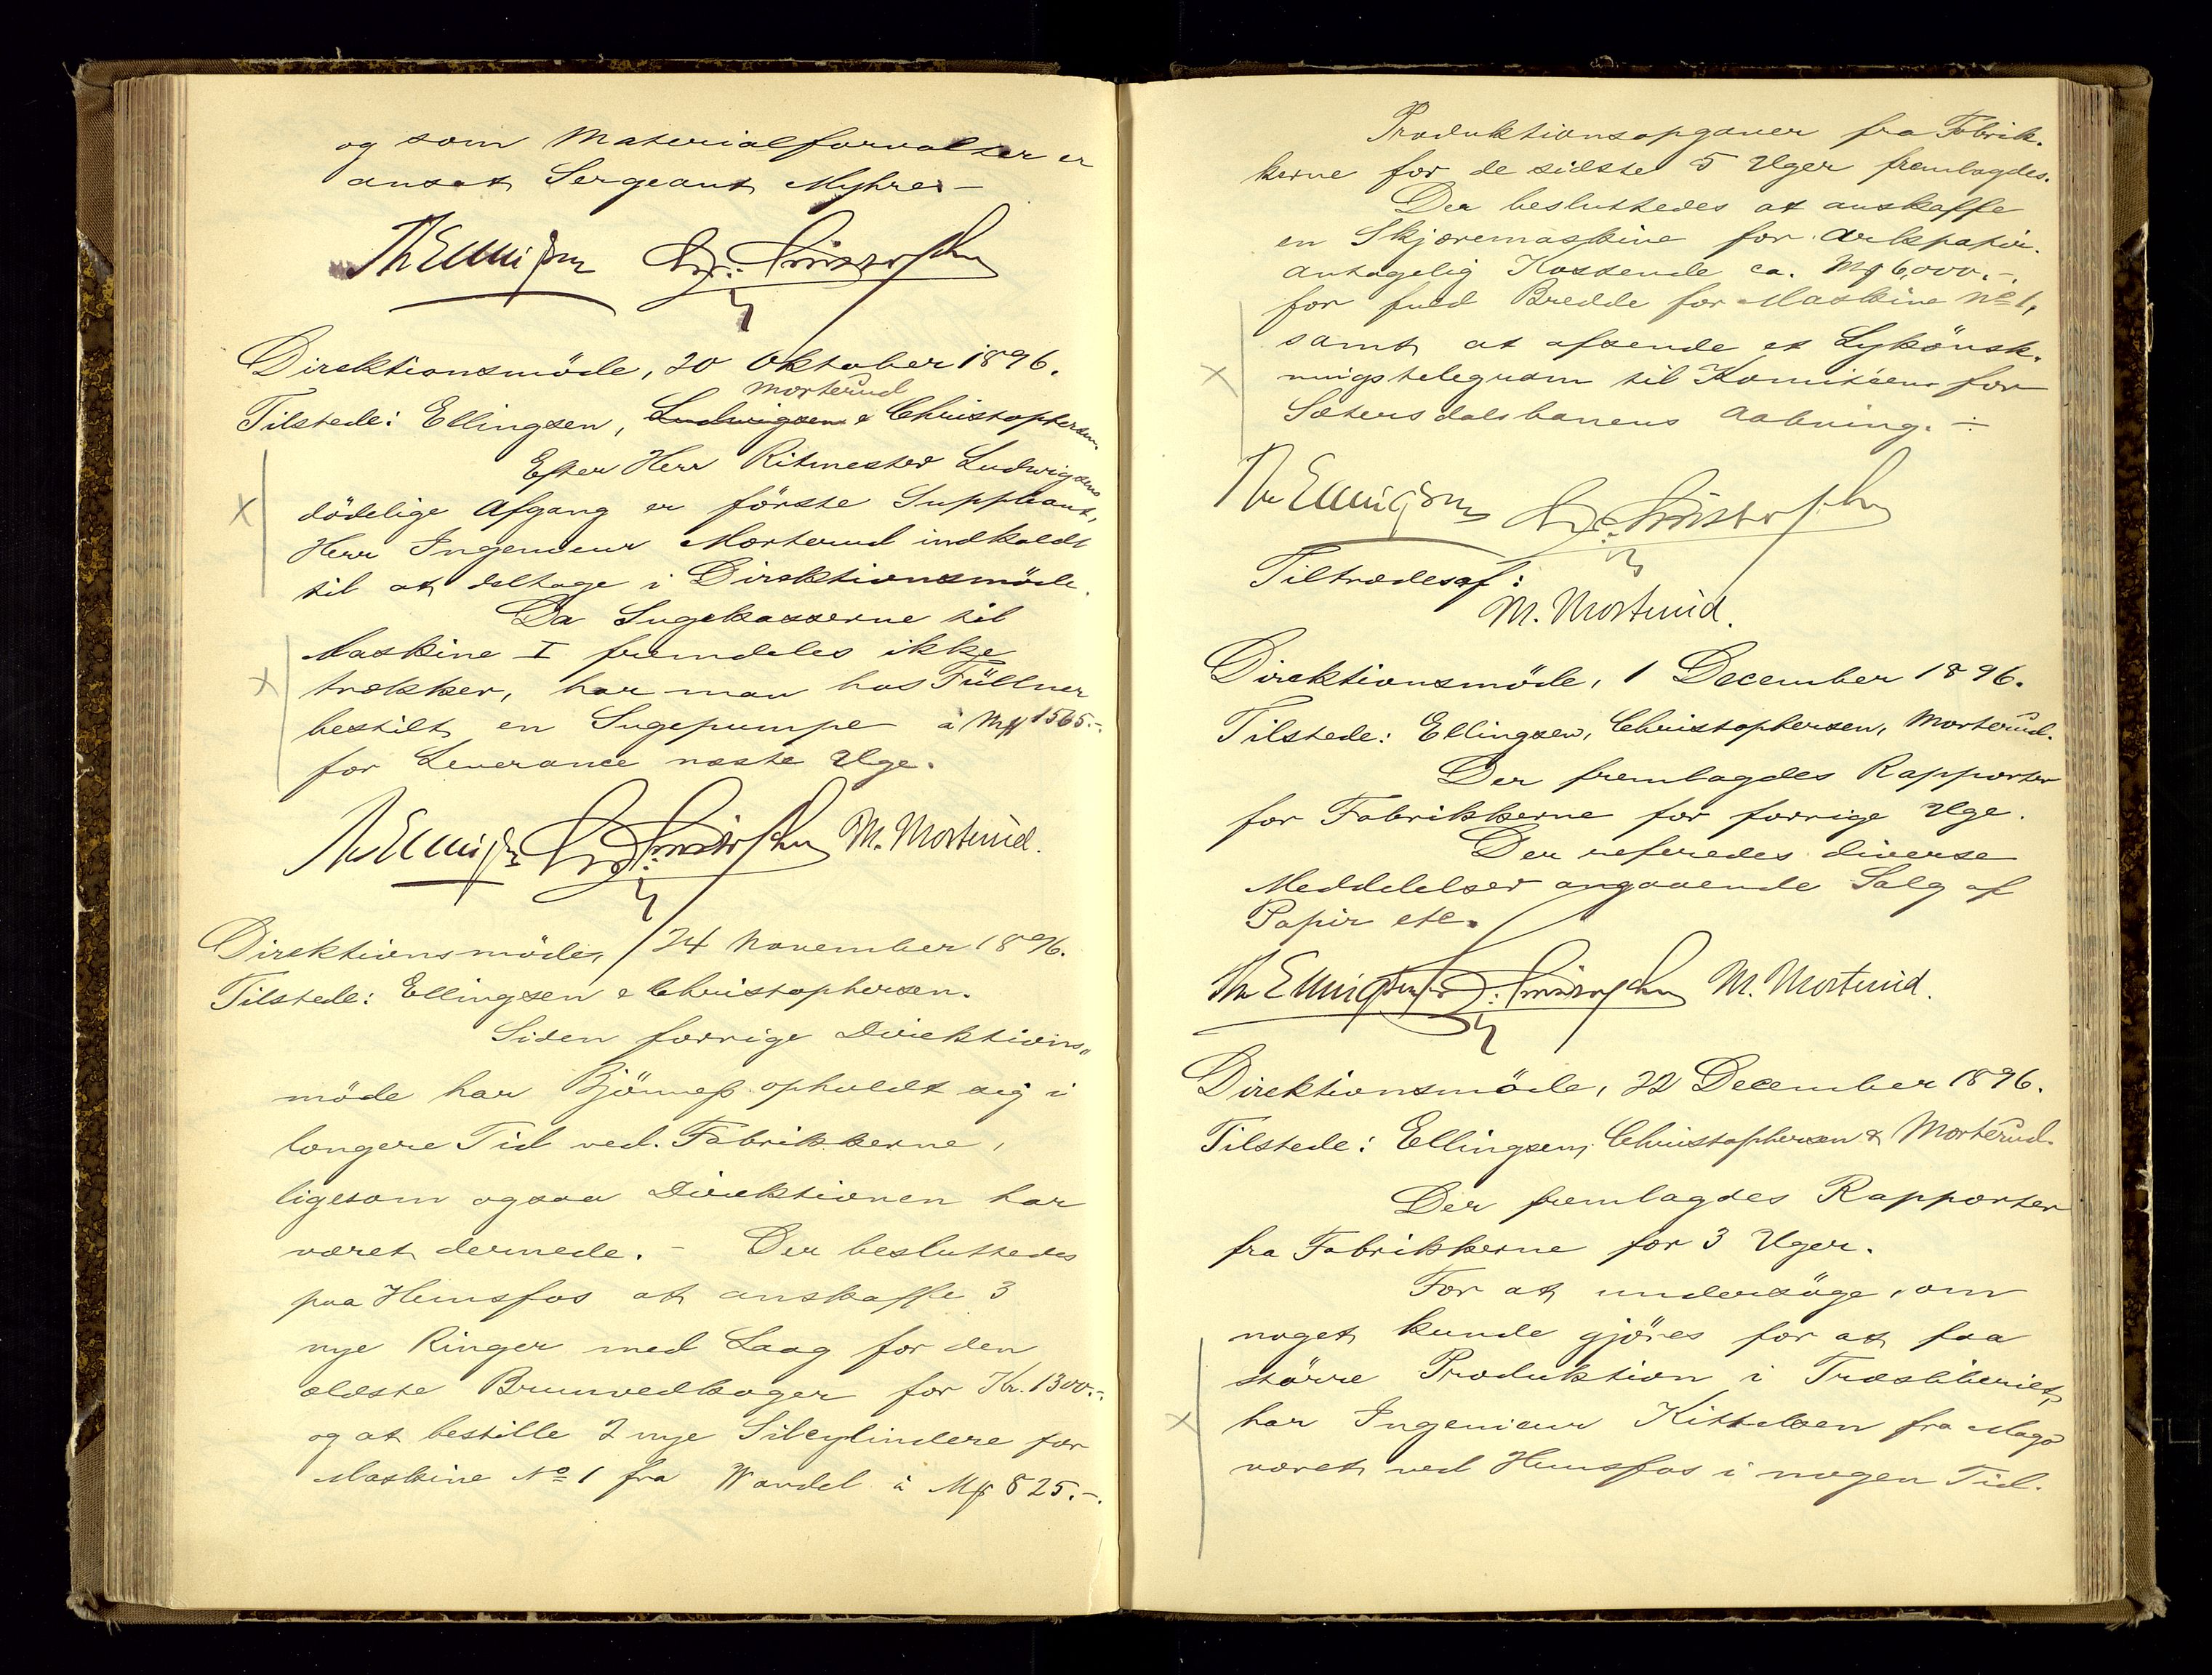 og som Materialforvalter er
ansat Sergeant Myhre. -
Th Ellingsen Chr. Christophersen
Direktionsmöde, 20 Oktober 1896.
Morterud
Tilstede: Ellingsen, Ludwigsen & Christophersen.
Efter Herr Ritmester Ludwigsens
dödelige Afgang er förste Suppleant,
Herr Ingenieur Morterud indkaldt
til at deltage i Direktionsmöde.
Da Sugekasserne til
Maskine I fremdeles ikke
trækker, har man hos Füllner
bestilt en Sugepumpe à Mk 1565.-
for Leverance næste Uge.
Th Ellingsen Chr. Christophersen M. Morterud.
Direktionsmöde, 24 November 1896.
Tilstede: Ellingsen & Christophersen.
Siden forrige Direktions„
möde har Björneß opholdt sig i
længere Tid ved Fabrikkerne,
ligesom ogsaa Direktionen har
været dernede. - Der besluttedes
paa Hunsfos at anskaffe 3
nye Ringer med Laag for den
ældste Brunvedkoger for Kr. 1300.-
og at bestille 2 nye Silcylindere for
Maskine No 1 fra Wandel à Mk 825.-.
Produktionsopgaver fra Fabrik-
kerne for de sidste 5 Uger fremlagdes.
Der besluttedes at anskaffe
en Skjæremaskine for Arkpapir.
antagelig Kostende ca. Mk 6,000.-.
for fuld Bredde for Maskine No 1,
samt at afsende et Lykönsk-
ningstelegram til Komitéen for
Sætersdalsbanens Aabning. -
Th Ellingsen Chr. Christophersen
Tiltrædes af:
M. Morterud.
Direktionsmöde, 1 December 1896.
Tilstede: Ellingsen, Christophersen, Morterud.
Der fremlagdes Rapporter
for Fabrikkerne for forrige Uge.
Der referedes diverse
Meddelelser angaaende Salg af
Papir etc.
Th Ellingsen Chr. Christophersen M. Morterud.
Direktionsmöde, 22 December 1896.
Tilstede: Ellingsen, Christophersen & Morterud.
Der fremlagdes Rapporter
fra Fabrikkerne for 3 Uger.
For at undersöge, om
noget kunde gjöres for at faa
större Produktion i Træsliberiet,
har Ingenieur Kittelsen fra Magö
været ved Hunsfos i nogen Tid.